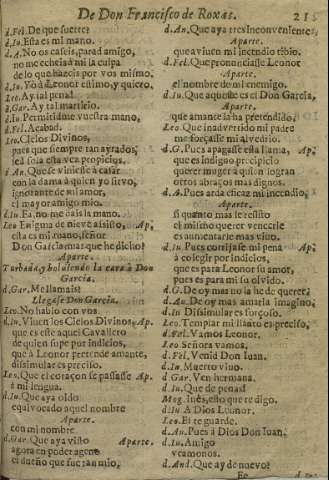 De Don Francisco de Roxas. 215
d.Fel. De que suerte?
d.Iu. Esta es mi mano.
d.A. No os caseis, pues d amigo,
no me echeis à mi la culpa
de lo que hazeis por vos mismo.
d.Iu. Yo à Leonor estimo, y quiero.
Leo. Ay tal pena!
d.Gar. Ay tal martirio.
d.Iu. Permitidme vuestra mano,
d.Fel. Acabad.
Leo. Cielos Divinos,
pues que siempre tan ayrados,
sed sola esta vez propicios.
d.An. Que se viniesse à casar
con la dama à quien yo sirvo,
ignorante de mi amor,
el mayor amigo mio.
d.Iu. Ea, no me dais la mano.
Leo Enigma de nieve assisto, Ap.
esta es mi mano, señor
Don Garcia: mas que he dicho?
Aparte.
Turbada, y bolviendo la cara à Don
Garcia.
d.Gar. Me llamais?
Llegase Don Garcia.
Leo. No hablo con vos.
d.Iu. Viven los Cielos Divinos, Ap.
que es este aquel Cavallero
de quien supe por indicios,
que à Leonor pretende amante,
dissimular es preciso.
Leo. Que el coraçon se passasse Ap.
à mi lengua.
d.Iu. Que aya oido
equivocado aquel nombre
Aparte.
con mi nombre.
d.Gar. Que aya visto Aparte.
agora en poder ageno
el dueño que fue tan mio.
d.An. Que aya tres inconvenientes,
Aparte.
que aviven mi incendio tibio.
d.Fel. Que pronunciasse Leonor
Aparte.
el nombre de mi enemigo.
d.Iu. Que aqueste es el Don Garcia,
Aparte.
que amante la ha pretendido.
Leo. Que inadvertido mi padre
me forçasse mi alvedrio.
d.G. Pues apagasse esta llama, Ap.
que es indigno precipicio
querer muger à quien logran
otros abraços mas dignos.
d.A. Pues arda eficaz mi incendio,
Aparte.
si quanto mas le resisto
el mismo querer vencerle
es aumentarle mas vivo.
d.Iu. Pues corrijase mi pena Ap.
à colegir por indicios,
que es para Leonor su amor,
pues es para mi su olvido.
d.G. De oy mas no la he de querer.
d.An. De oy mas amarla imagino.
d.Iu Dissimular es forçoso.
Leo. Templar mi llanto es preciso.
d.Fel. Vamos Leonor.
Leo Señora vamos.
d.Fel. Venid Don Iuan.
d.Iu. Muerto vivo.
d Gar. Ven hermana.
d.Iu. Que de penas!
Mog. Inés, esto que te digo.
d.Iu A Dios Leonor.
Leo. El te guarde.
d.An. Pues à Dios Don Iuan.
d.Iu. Amigo
veamonos.
d.And. Que ay de nuevo?
Ee